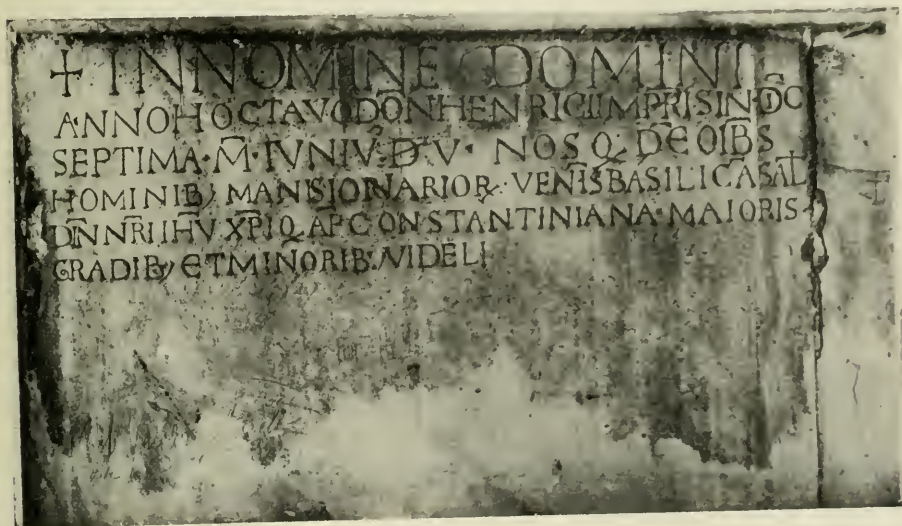 + INNOMINE DOMINI
ANNO H OCTAVO DŌN HENRICI IMPRIS INDC̄
SEPTIMA · M̄ · IVNIV · D · V · NOS Q DE OIB̄S
HOMINIB; MANISIONARIOR VENIS BASILICA SAL
DN̄ NR̄I IHV̄ XP̄I Q AP CONSTANTINIANA · MAIORIS
GRADIB; ET MINORIB: VIDELI